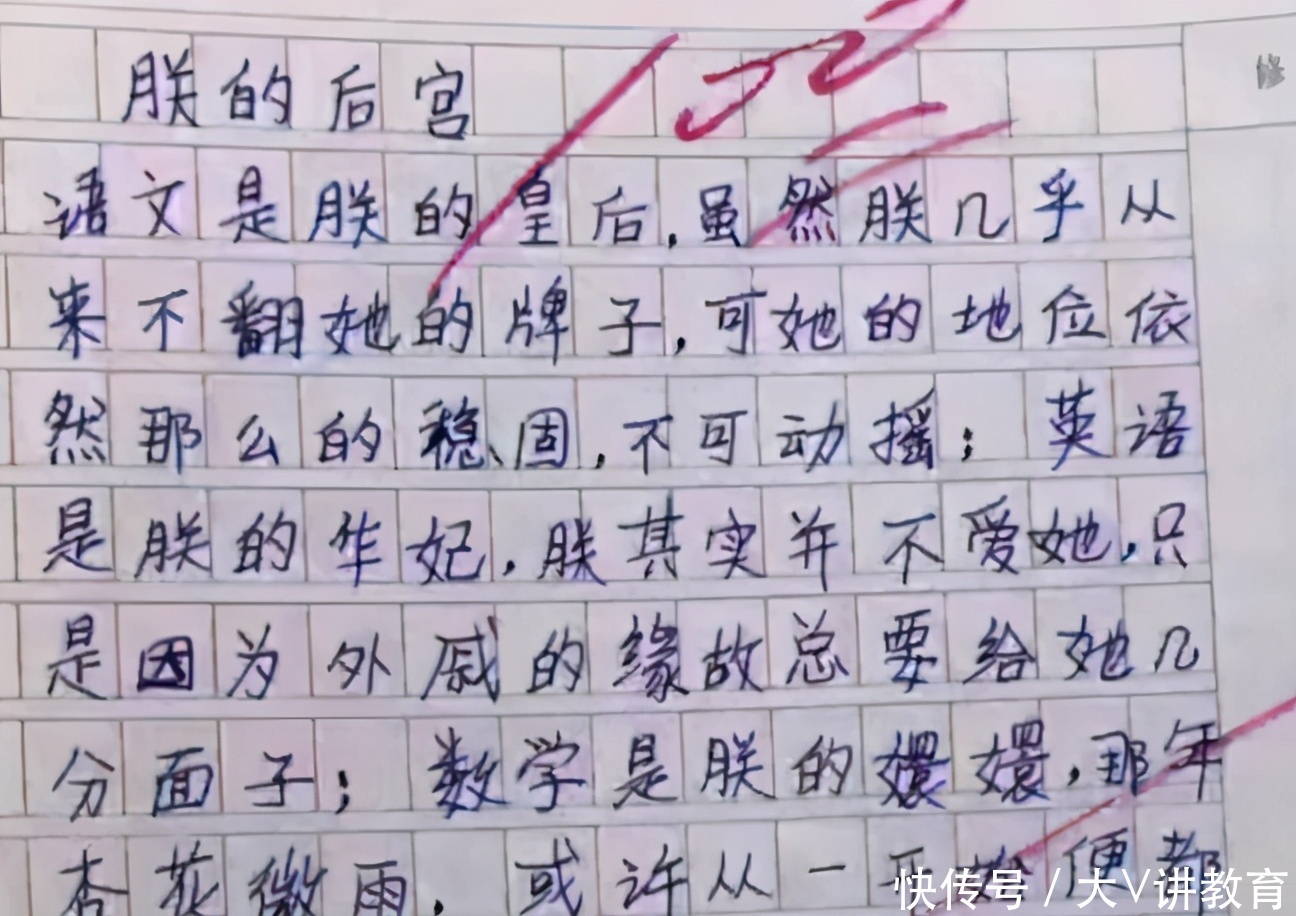 朕的后宫
语文是朕的皇后,虽然朕几乎从
来不翻她的牌子,可她的地位依
然那么的稳固,不可动摇;英语
是朕的华妃,朕其实并不爱她,只
是因为外戚的缘故总要给她几
分面子;数学是朕的嬛嬛,那年
杏花微雨,或许从一 便都
快传号 / 大V讲教育